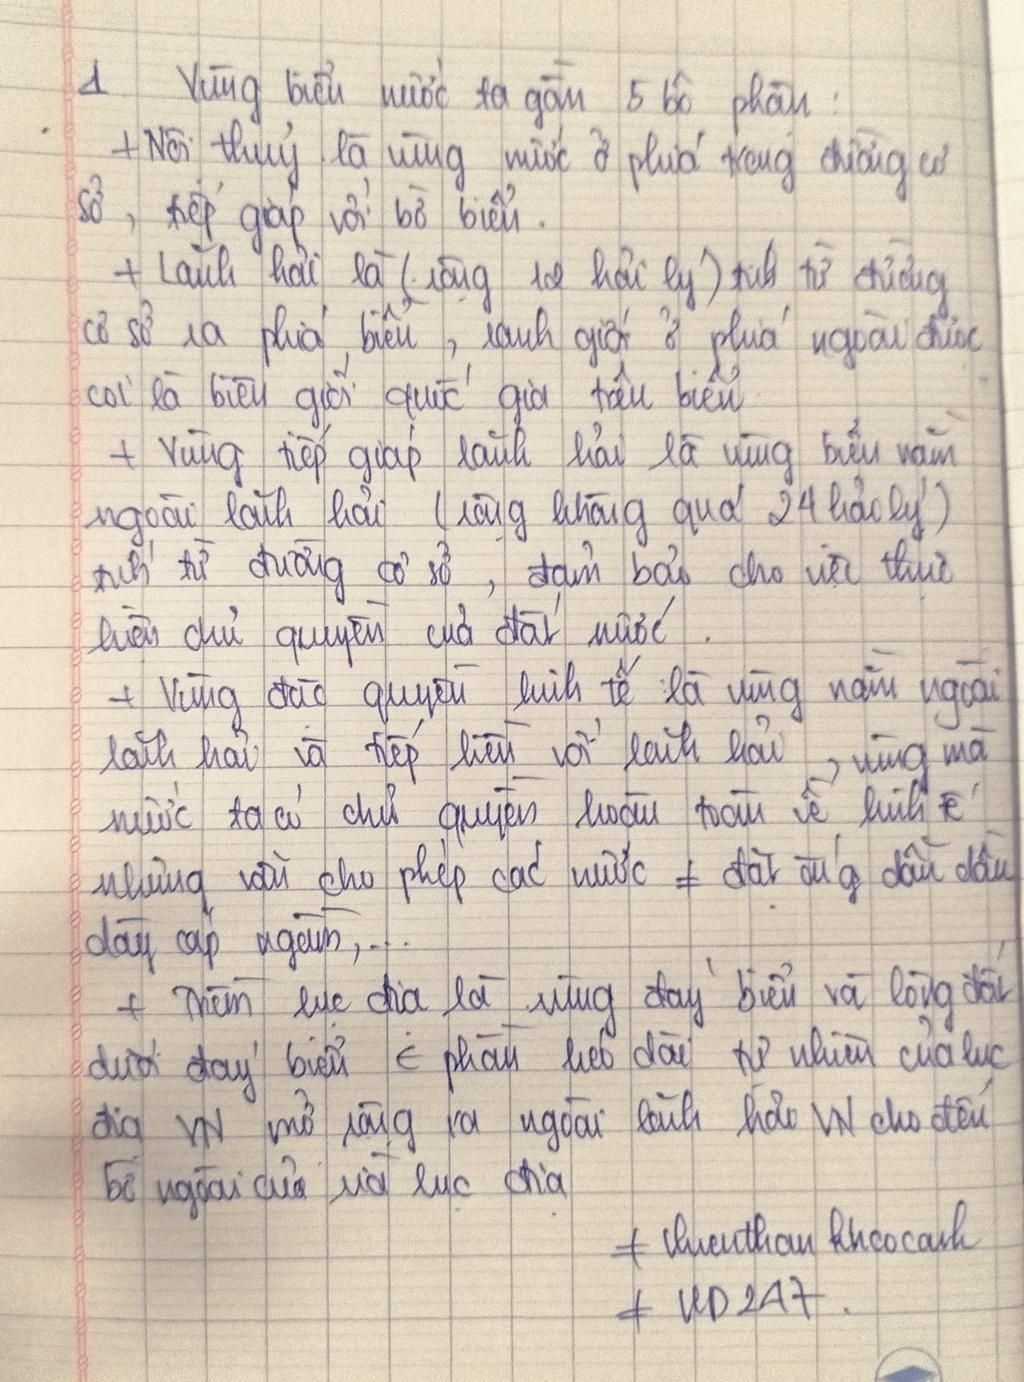 1 Vùng biển nước ta gồm 5 bộ phận :
+ Nội thuỷ là vùng nước ở phía trong đường cơ
sở, tiếp giáp với bờ biển.
+ Lãnh hải là (rộng 12 hải lý) tính từ đường
cơ sở ra phía biển, ranh giới ở phía ngoài được
coi là biên giới quốc gia trên biển
+ Vùng tiếp giáp lãnh hải là vùng biển nằm
ngoài lãnh hải (rộng không quá 24 hải lý)
tính từ đường cơ sở, đảm bảo cho việc thực
hiện chủ quyền của đất nước.
+ Vùng đặc quyền kinh tế là vùng nằm ngoài
lãnh hải và tiếp liền với lãnh hải, vùng mà
nước ta có chủ quyền hoàn toàn về kinh tế
nhưng vẫn cho phép các nước ≠ đặt ống dẫn dầu
dây cáp ngầm,...
+ Thềm lục địa là vùng đáy biển và lòng đất
dưới đáy biển ∈ phần kéo dài tự nhiên của lục
địa VN mở rộng ra ngoài lãnh hải VN cho đến
bờ ngoài của rìa lục địa
+ thienthan khocanh
+ VD247.